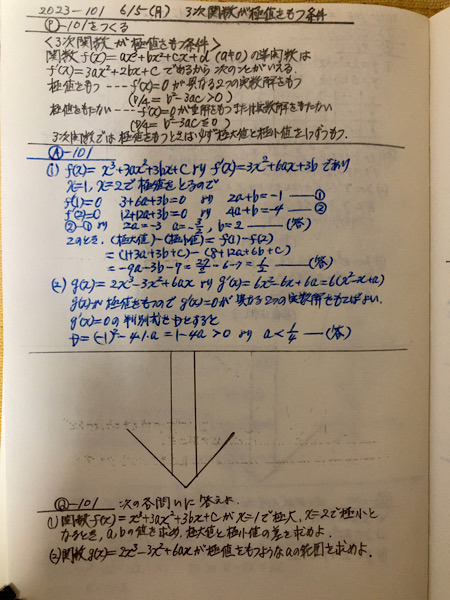 2023-101 6/5(月) 3次関数が極値をもつ条件
Ⓟ-101をつくる
<3次関数が極値をもつ条件>
関数 f(x)=ax³+bx²+cx+d (a≠0) の導関数は
f'(x)=3ax²+2bx+c であるから次のことがいえる.
極値をもつ ---- f'(x)=0が異なる2つの実数解をもつ
(D/4 = b²-3ac>0)
極値をもたない ---- f'(x)=0が重解をもつまたは実数解をもたない
(D/4 = b²-3ac≦0)
3次関数では極値をもつときは必ず極大値と極小値を1つずつもつ.
Ⓐ-101
(1) f(x)=x³+3ax²+3bx+c より f'(x)=3x²+6ax+3b であり
x=1, x=2で極値をとるので
f'(1)=0 3+6a+3b=0 より 2a+b=-1 ―①
f'(2)=0 12+12a+3b=0 より 4a+b=-4 ―②
②-①より 2a=-3 a=-3/2, b=2 ―(答)
このとき、(極大値)-(極小値)=f(1)-f(2)
=(1+3a+3b+c)-(8+12a+6b+c)
=-9a-3b-7=27/2-6-7=1/2 ―(答)
(2) g(x)=2x³-3x²+6ax より g'(x)=6x²-6x+6a=6(x²-x+a)
g(x)が極値をもつので g'(x)=0が異なる2つの実数解をもてばよい.
g'(x)=0の判別式をDとすると
D=(-1)²-4・1・a=1-4a>0 より a<1/4 ―(答)
Ⓠ-101 次の各問いに答えよ.
(1) 関数f(x)=x³+3ax²+3bx+cがx=1で極大, x=2で極小と
なるとき, a,bの値を求め, 極大値と極小値の差を求めよ.
(2) 関数g(x)=2x³-3x²+6axが極値をもつようなaの範囲を求めよ.